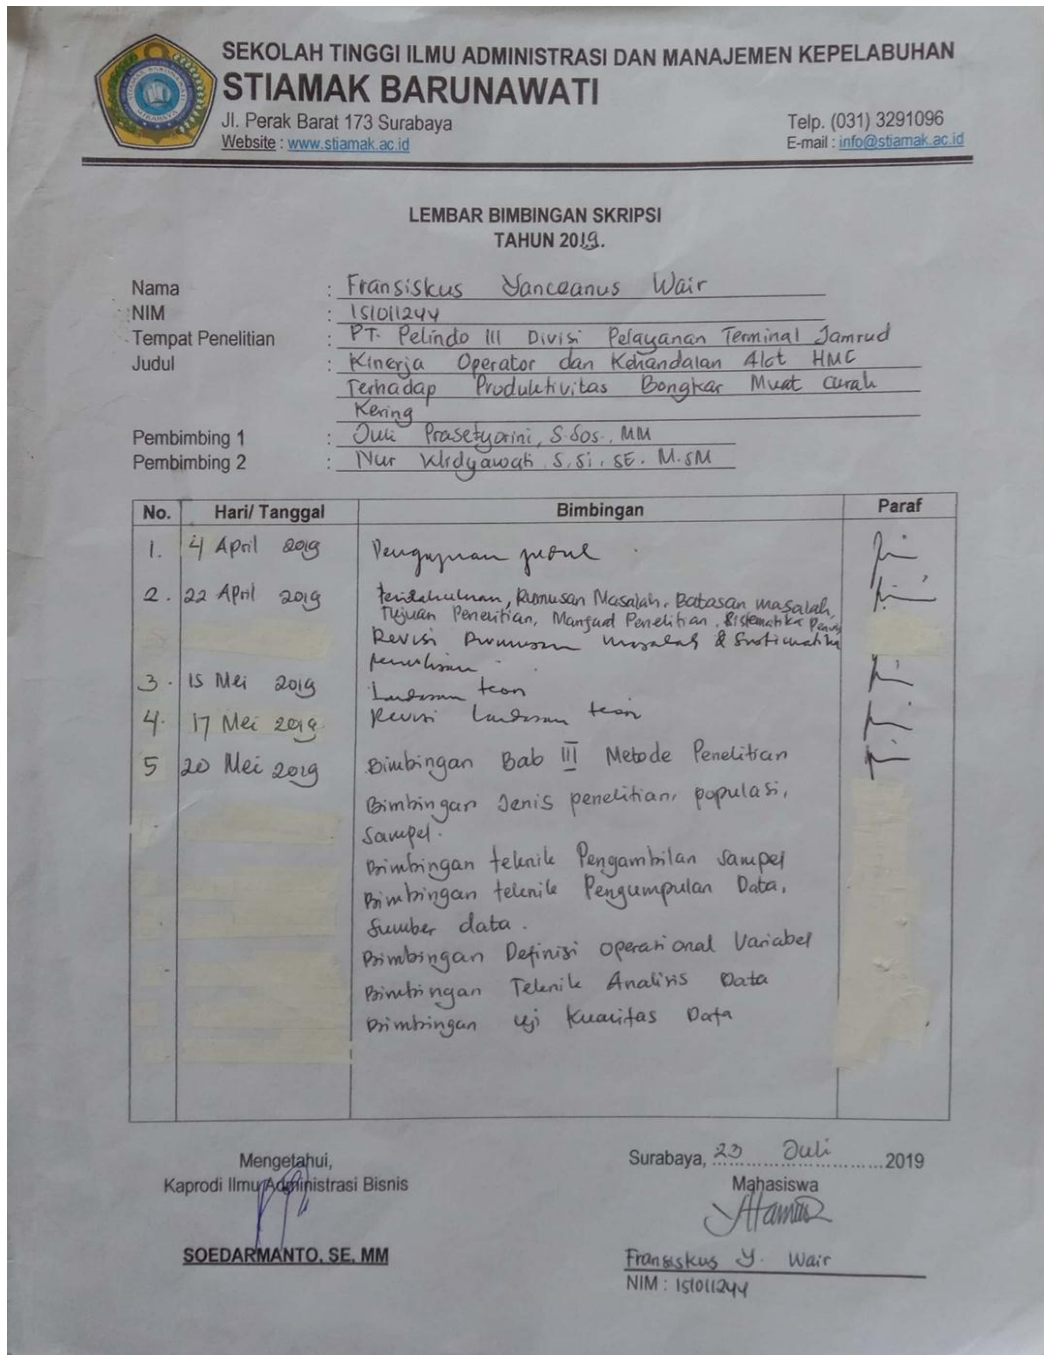 SEKOLAH TINGGI ILMU ADMINISTRASI DAN MANAJEMEN KEPELABUHAN
STIAMAK BARUNAWATI
Jl. Perak Barat 173 Surabaya
Telp. (031) 3291096
Website : www.stiamak.ac.id
E-mail : info@stiamak.ac.id
LEMBAR BIMBINGAN SKRIPSI
TAHUN 2019.
Nama : Fransiskus Yanceanus Wair
NIM : 151011244
Tempat Penelitian : PT. Pelindo III Divisi Pelayanan Terminal Jamrud
Judul : Kinerja Operator dan Kehandalan Alat HMC
Terhadap Produktivitas Bongkar Muat Curah
Kering
Pembimbing 1 : Juli Prasetyorini, S.Sos., MM
Pembimbing 2 : Nur Widyawati, S.Si., SE. M.SM
No. Hari/ Tanggal Bimbingan Paraf
1. 4 April 2019 Pengajuan judul
2. 22 April 2019 Pendahuluan, Rumusan Masalah, Batasan masalah,
Tujuan Penelitian, Manfaat Penelitian, Sistematika
Revisi Rumusan masalah & Sistematika
penulisan
3. 15 Mei 2019 Landasan teori
4. 17 Mei 2019 Revisi landasan teori
5 20 Mei 2019 Bimbingan Bab III Metode Penelitian
Bimbingan Jenis penelitian, populasi,
Sampel.
Bimbingan teknik Pengambilan sampel
Bimbingan teknik Pengumpulan Data,
Sumber data.
Bimbingan Definisi Operasional Variabel
Bimbingan Teknik Analisis Data
Bimbingan Uji Kualitas Data
Surabaya, 23 Juli 2019
Mengetahui,
Kaprodi Ilmu Administrasi Bisnis
Mahasiswa
SOEDARMANTO, SE, MM
Fransiskus Y. Wair
NIM : 151011244